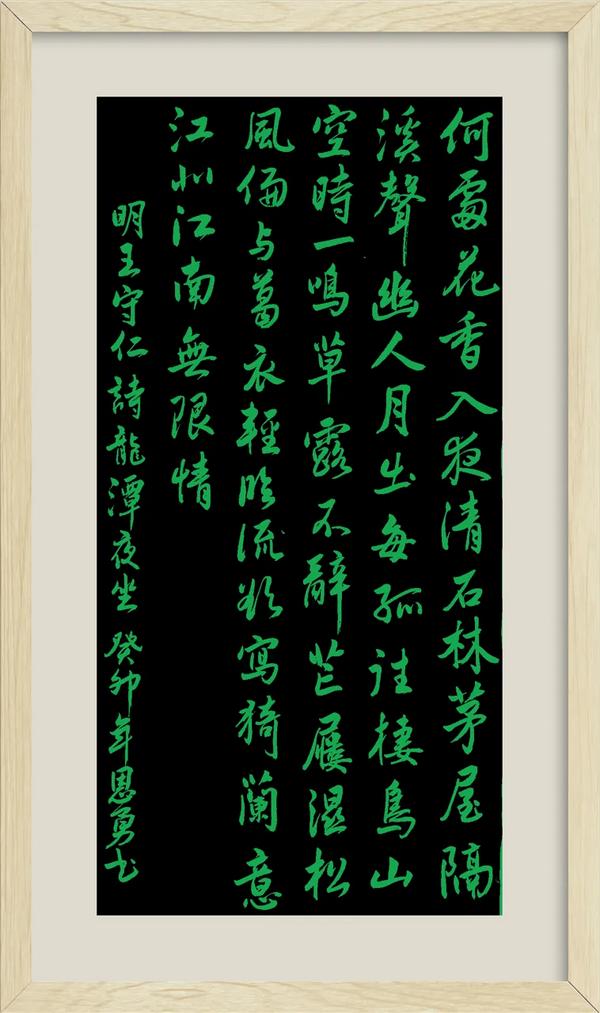 何處花香入夜清石林茅屋隔
溪聲幽人月出每孤往棲鳥山
空時一鳴草露不辭芒屨湿松
風偏与葛衣輕臨流欲寫猗蘭意
江北江南無限情
明王守仁詩龍潭夜坐 癸卯年恩勇书